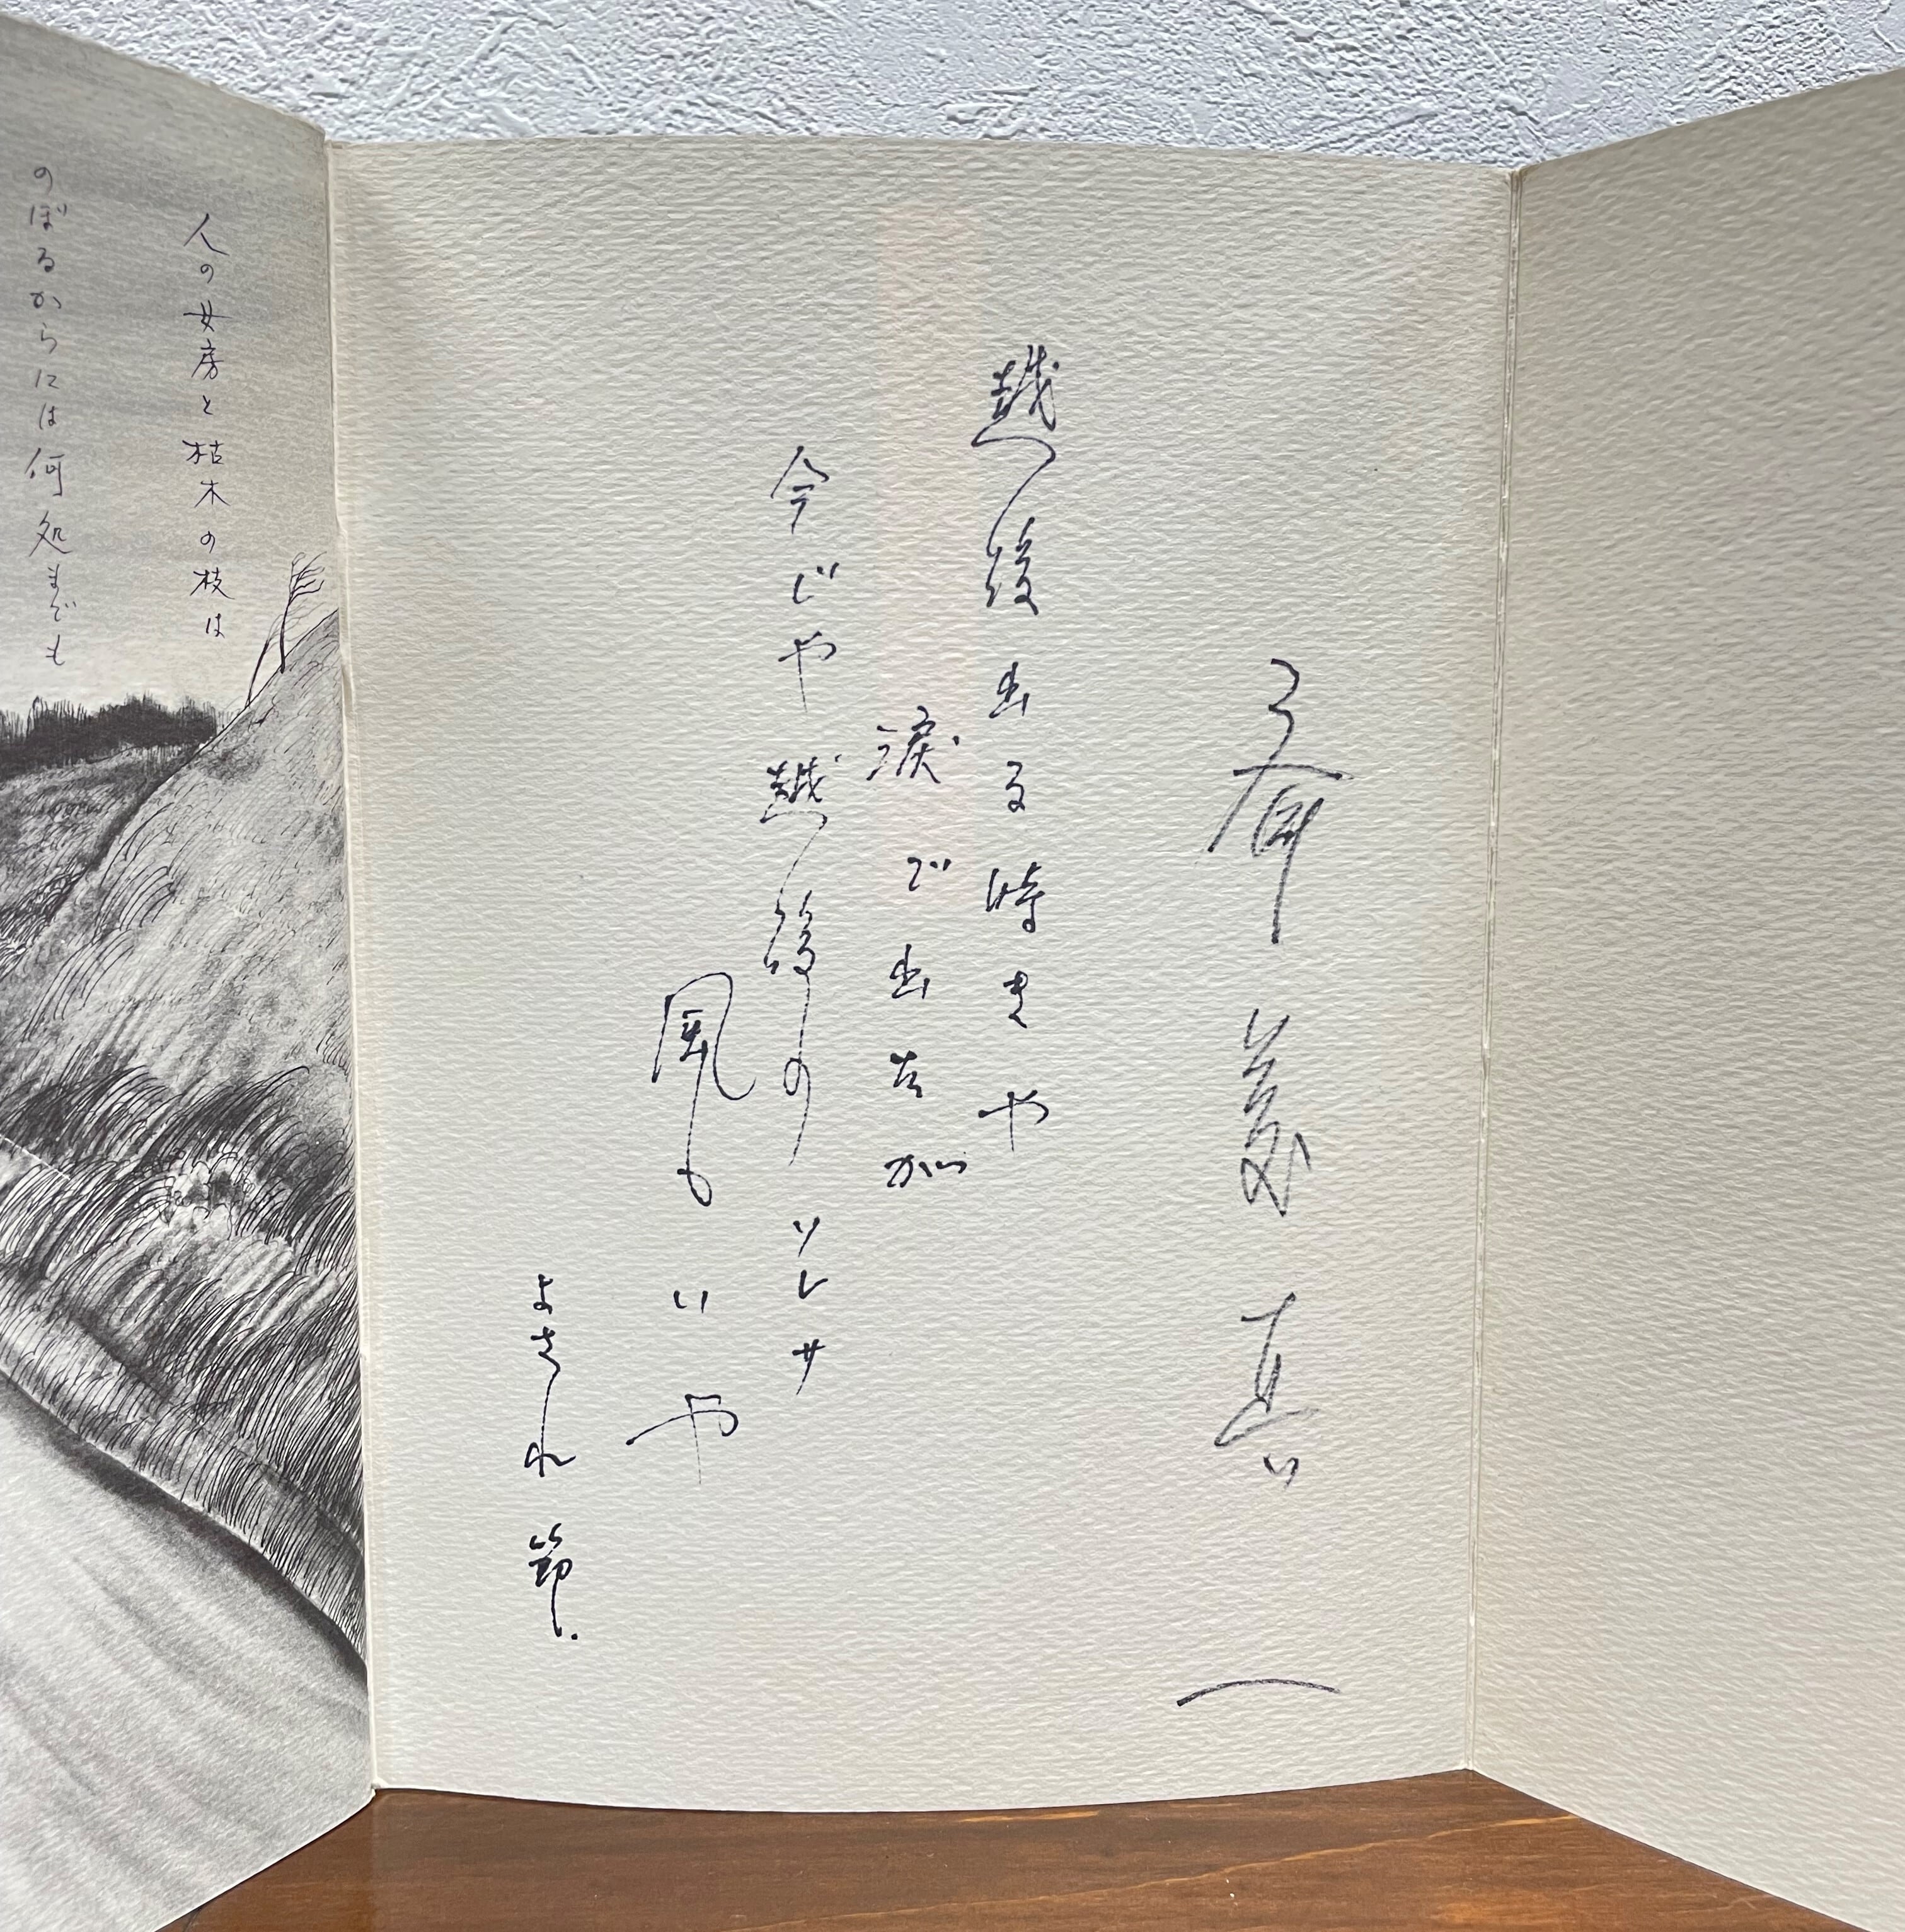 斎藤真一
越後出る時きや
涙で出たが
今じや越後のソレサ
風もいや
よされ節.
人の女房と枯木の枝は
のぼるからには何処までも